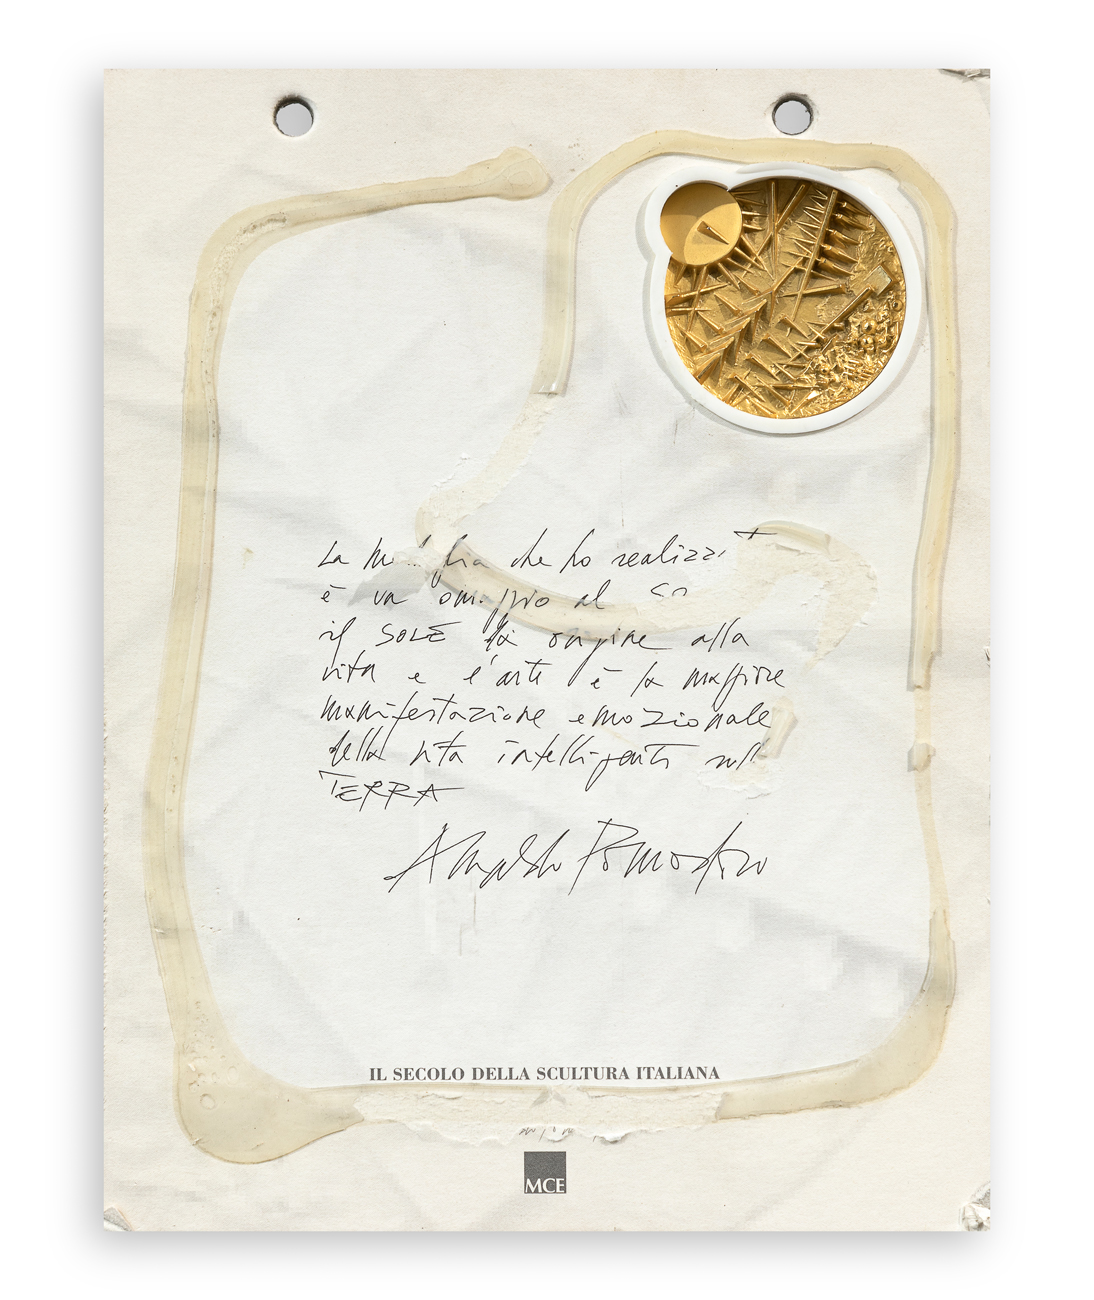 La che ho
è un al
il SOLE dà origine alla
vita e l'arte è la maggiore
manifestazione emozionale
della vita intelligente
TERRA
Arnaldo Pomodoro
IL SECOLO DELLA SCULTURA ITALIANA
MCE